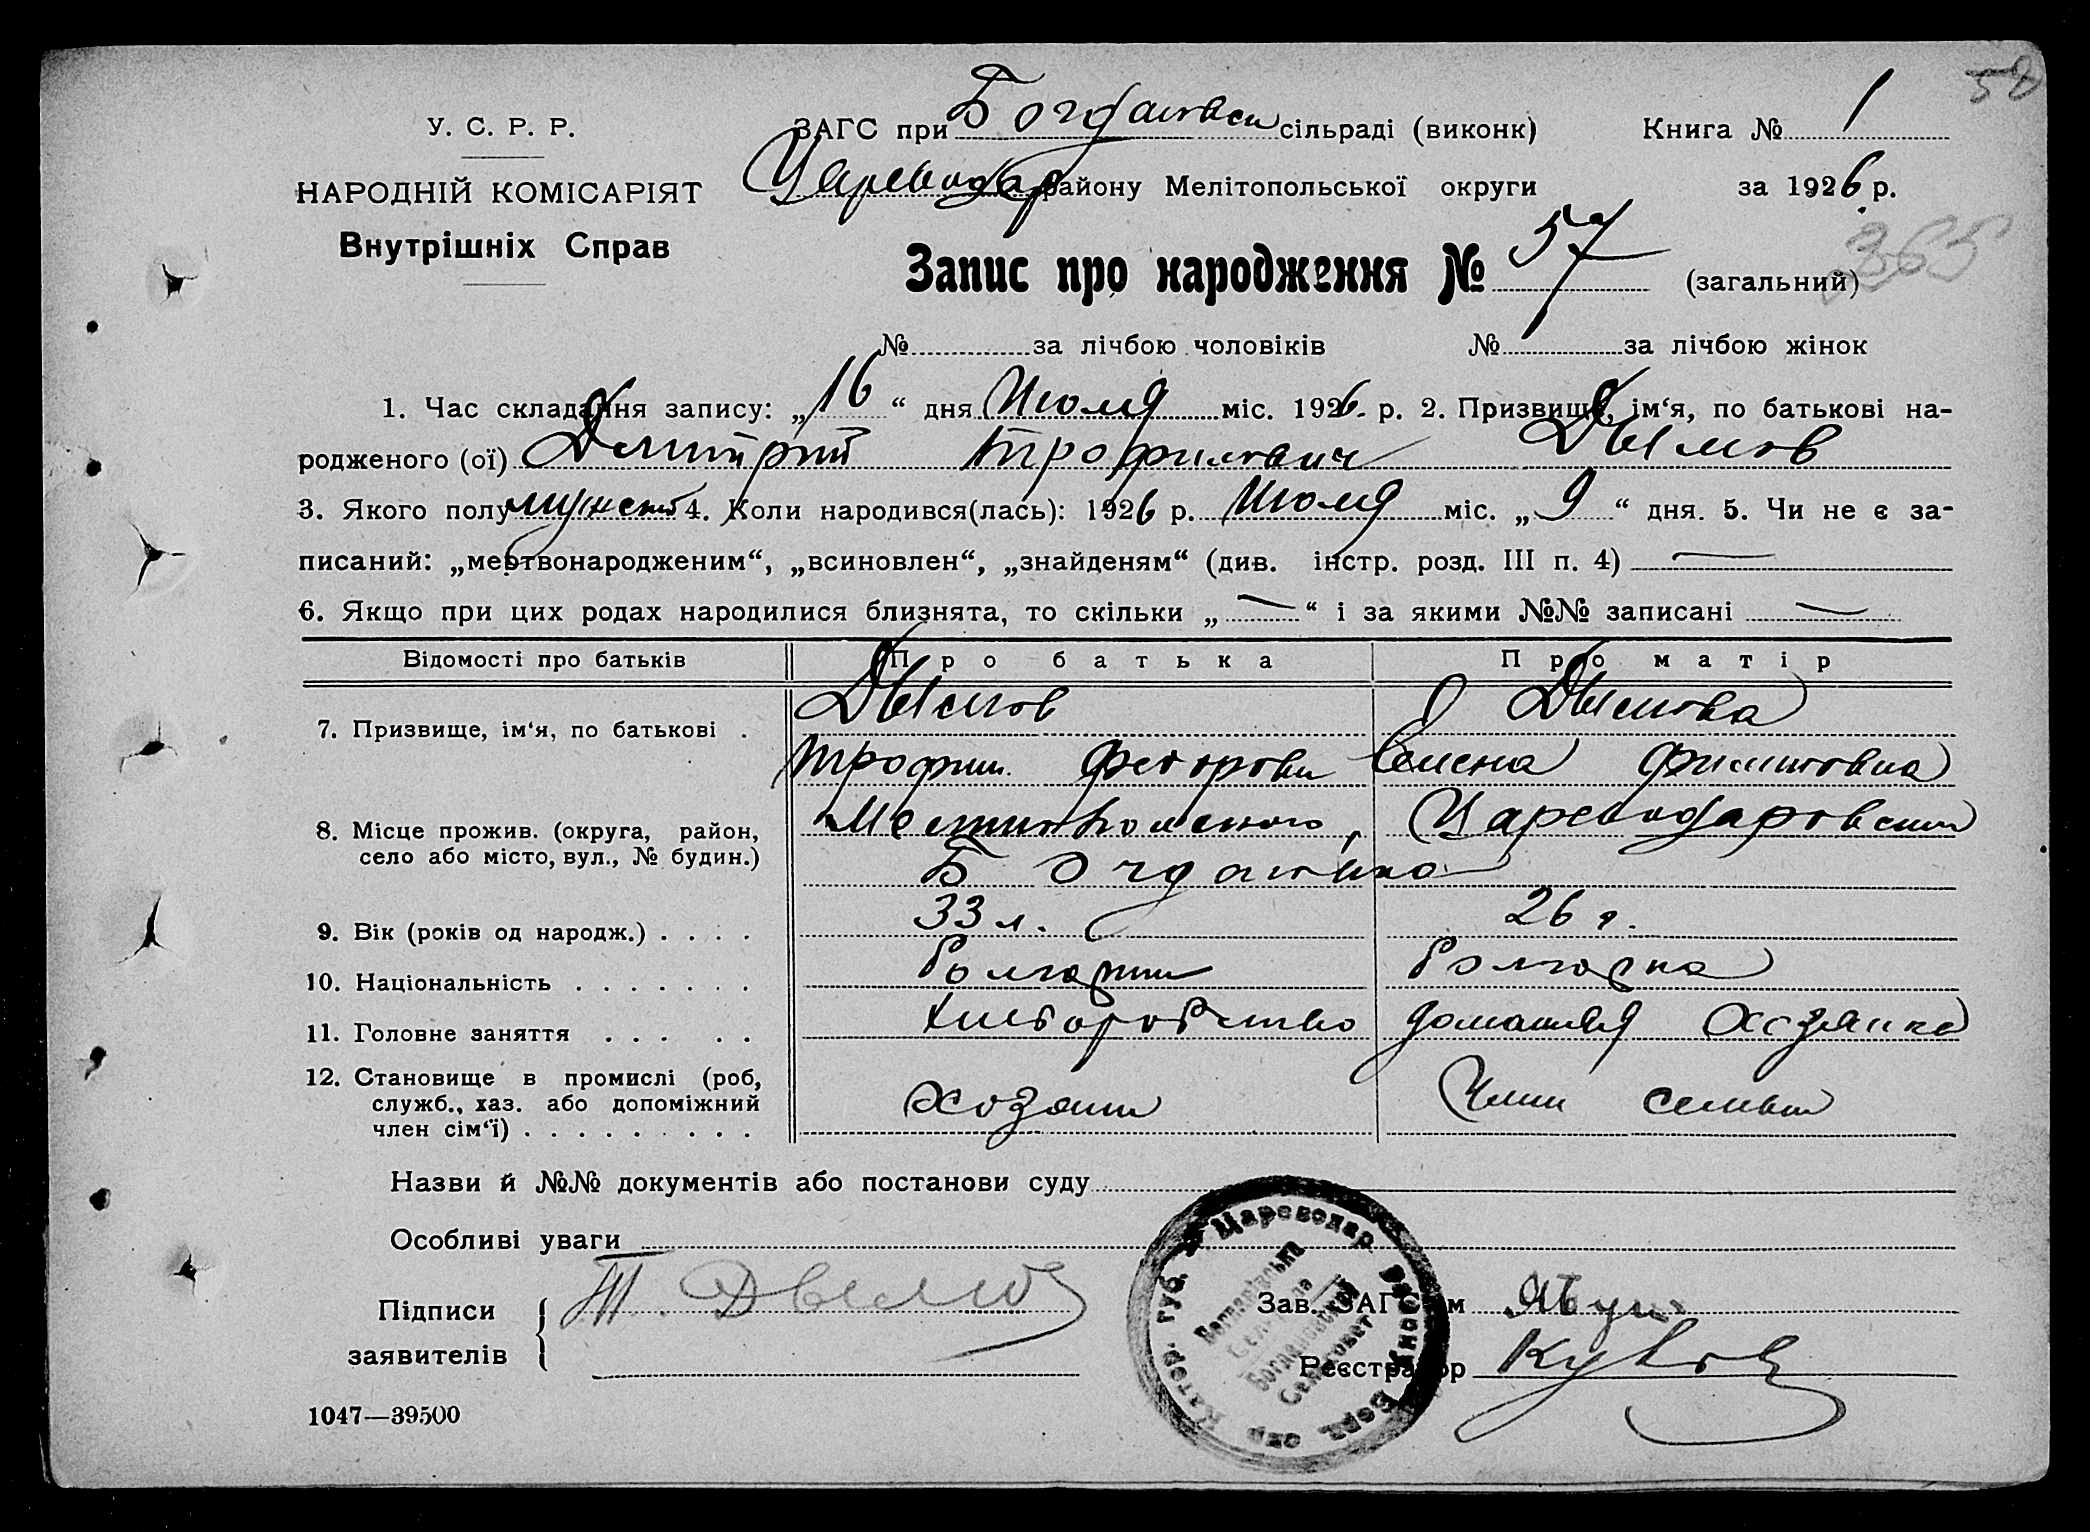 58
У. С. Р. Р.
НАРОДНІЙ КОМІСАРІЯТ
Внутрішніх Справ
ЗАГС при Богдановск сільраді (виконк) Книга № 1
Цареводар району Мелітопольської округи за 1926 р.
365
Запис про народження № 57 (загальний)
№ за лічбою чоловіків № за лічбою жінок
1. Час складання запису: „16“ дня Июля міс. 1926. р. 2. Призвище, ім‘я, по батькові на-
родженого (ої) Дмитрий Трофимович Дымов
3. Якого полу мужск 4. Коли народився(лась): 1926 р. Июля міс. „9“ дня. 5. Чи не є за-
писаний: „мертвонародженим“, „всиновлен“, „знайденям“ (див. інстр. розд. III п. 4) —
6. Якщо при цих родах народилися близнята, то скільки „—“ і за якими №№ записані —
Відомості про батьків Про батька Про матір
7. Призвище, ім‘я, по батькові . Дымов Дымова
Трофим Федорови Елена Филиповна
8. Місце прожив. (округа, район, село або місто, вул., № будин.) Мелитопольского, Цареводаровский
Богдановка
9. Вік (років од народж.) . . . . 33 л. 26 г.
10. Національність . . . . . . . Болгарин Болгарка
11. Головне заняття . . . . . Хлеборобство домашняя Хозяика
12. Становище в промислі (роб, служб., хаз. або допоміжний член сім‘ї) . . . . . . . . . Хозяин Член семьи
Назви й №№ документів або постанови суду
Особливі уваги
Підписи заявителів Т. Дымов
Цареводар район Берд. окр Катер. губ.
Богданівська Сельрада
Богдановский Сельсовет
Зав. ЗАГС‘ом
Реєстратор
1047—39500